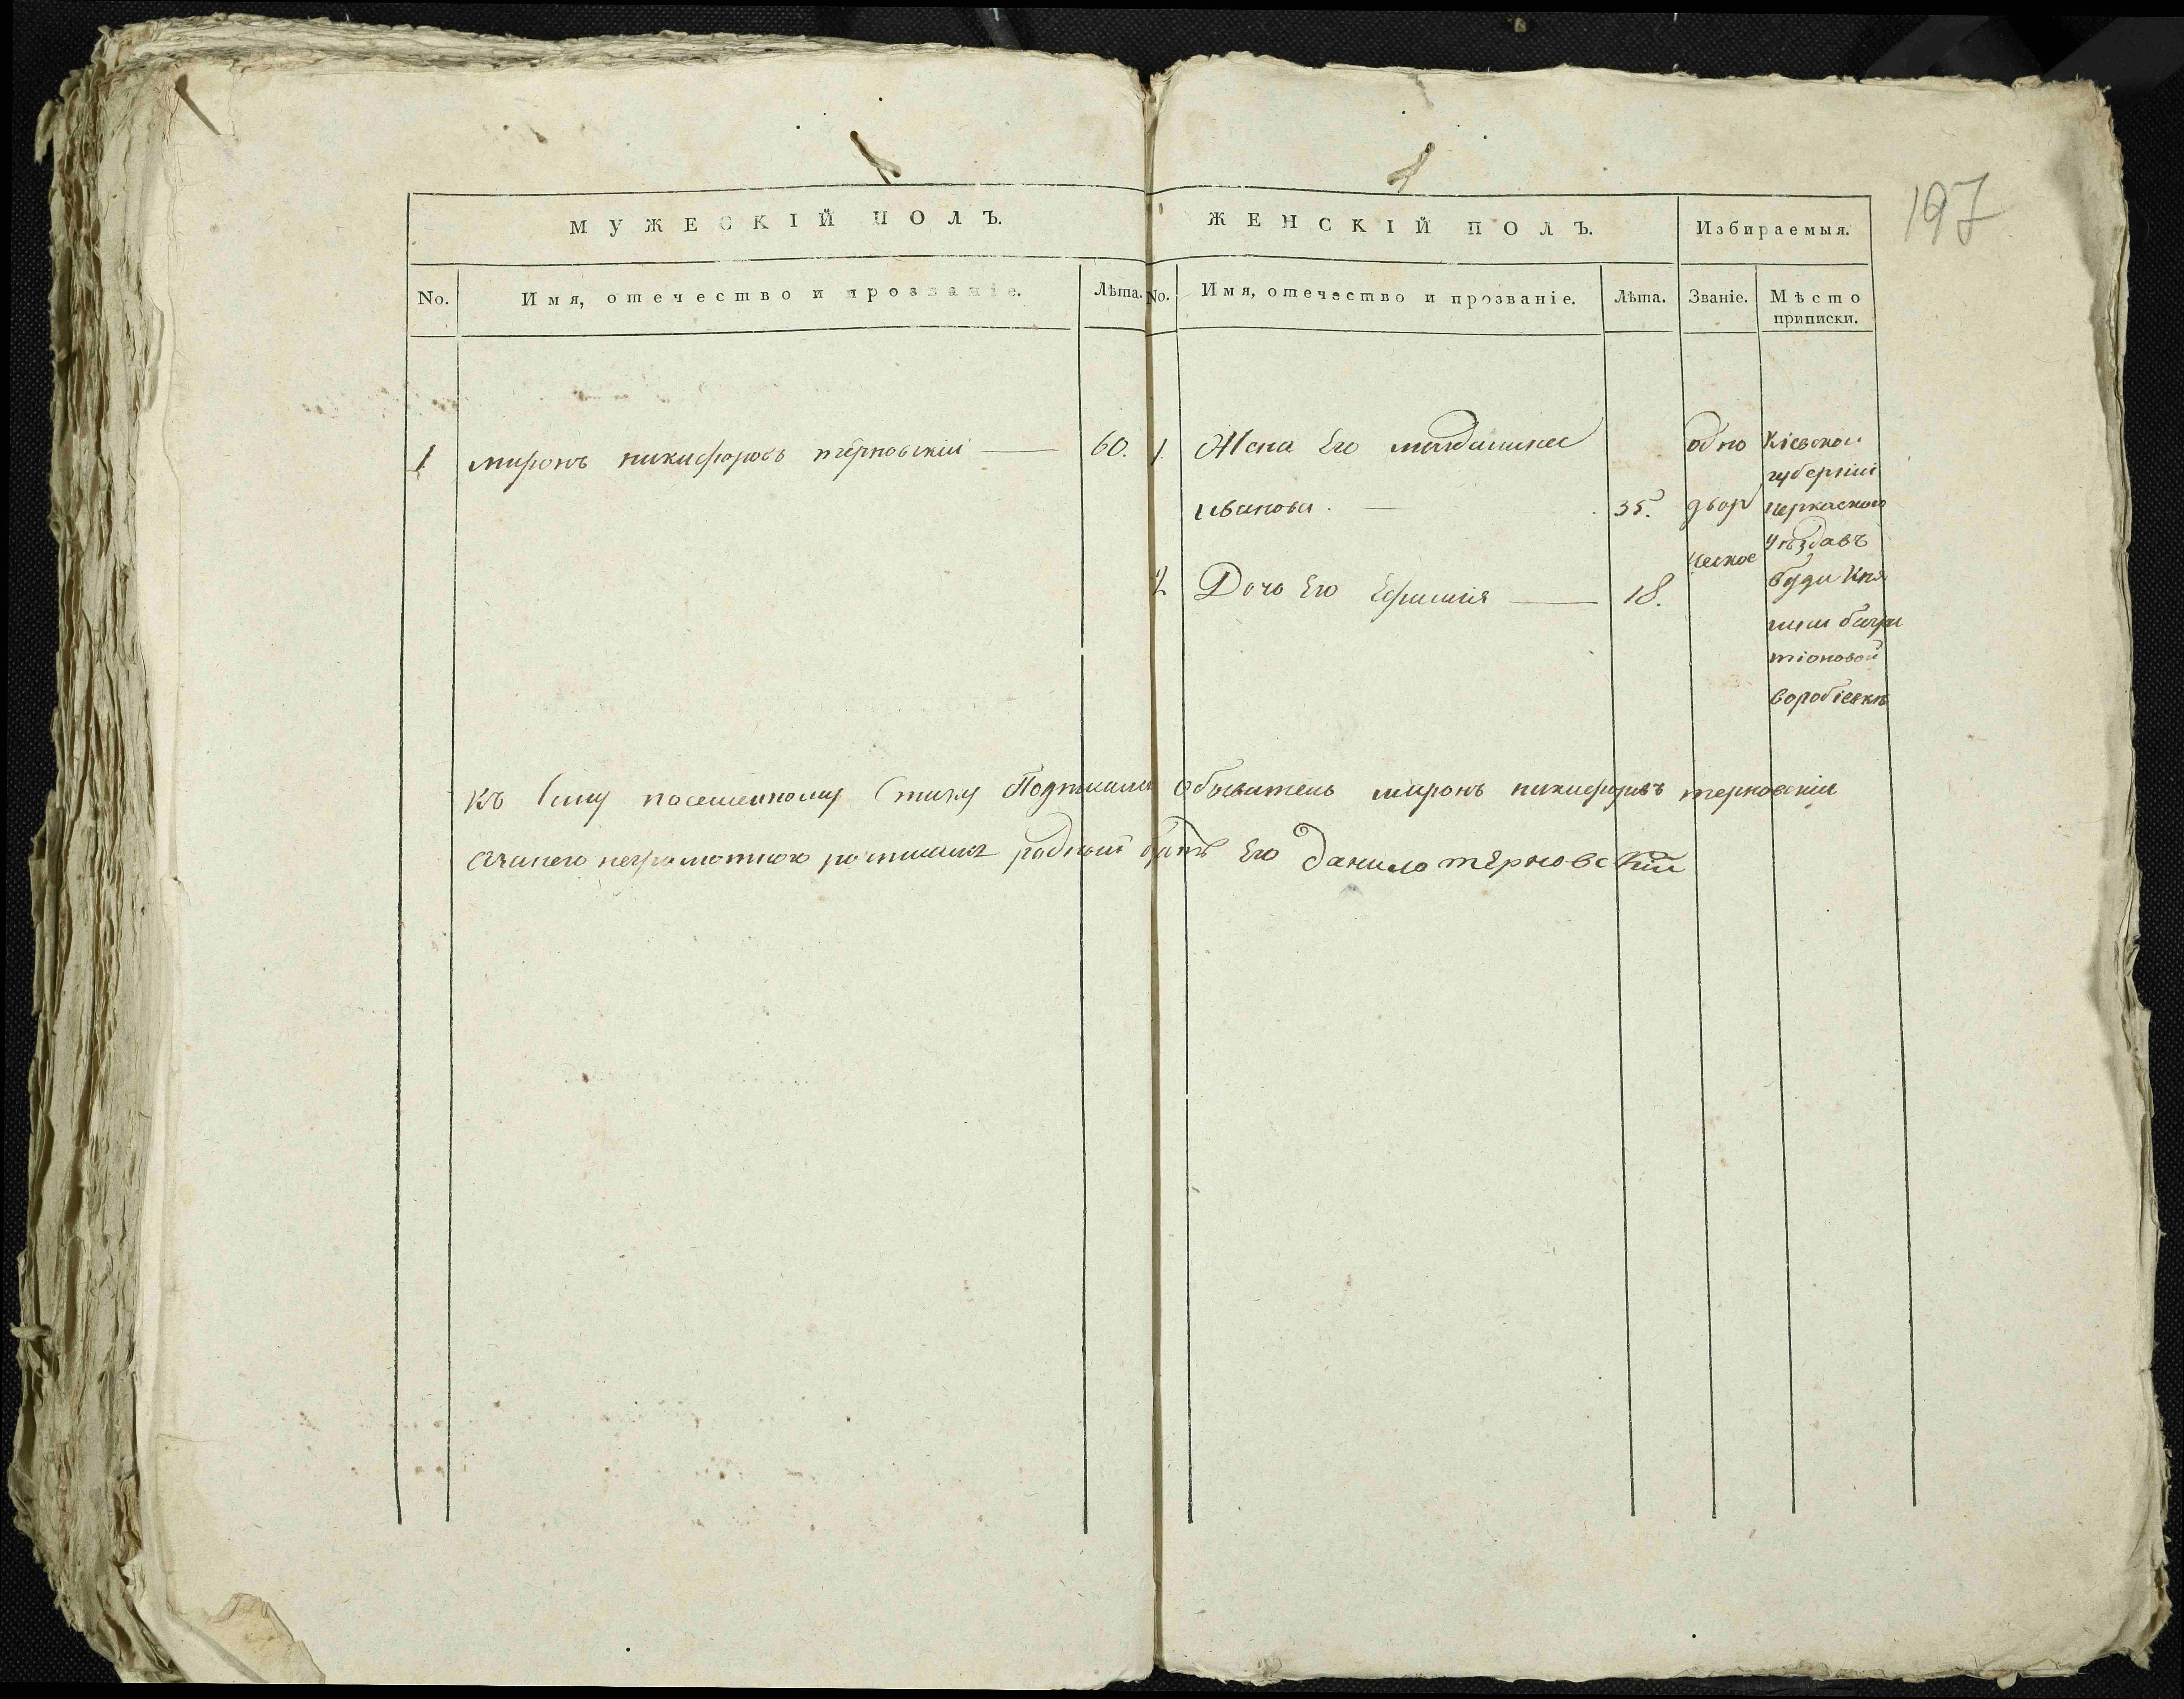 197
МУЖЕСКІЙ ПОЛЪ.
ЖЕНСКІЙ ПОЛЪ.
Избираемыя.
No.
Имя, отечество и прозваніе.
Лѣта.
No.
Имя, отечество и прозваніе.
Лѣта.
Званіе.
Мѣсто
приписки.
1 миронъ никифоровъ терновскій 60.
1. Жена Его
иванова. 35.
2 Дочь Его 18.
одно
двор
ческое
Кіевской
губерніи
черкаского
уѣздавъ
буди Кня
гини багра
тіоновой
воробіевкѣ
къ сему посемейному Списку Обыватель миронъ никифоровъ терновскій
родный братъ Его данило терновскій